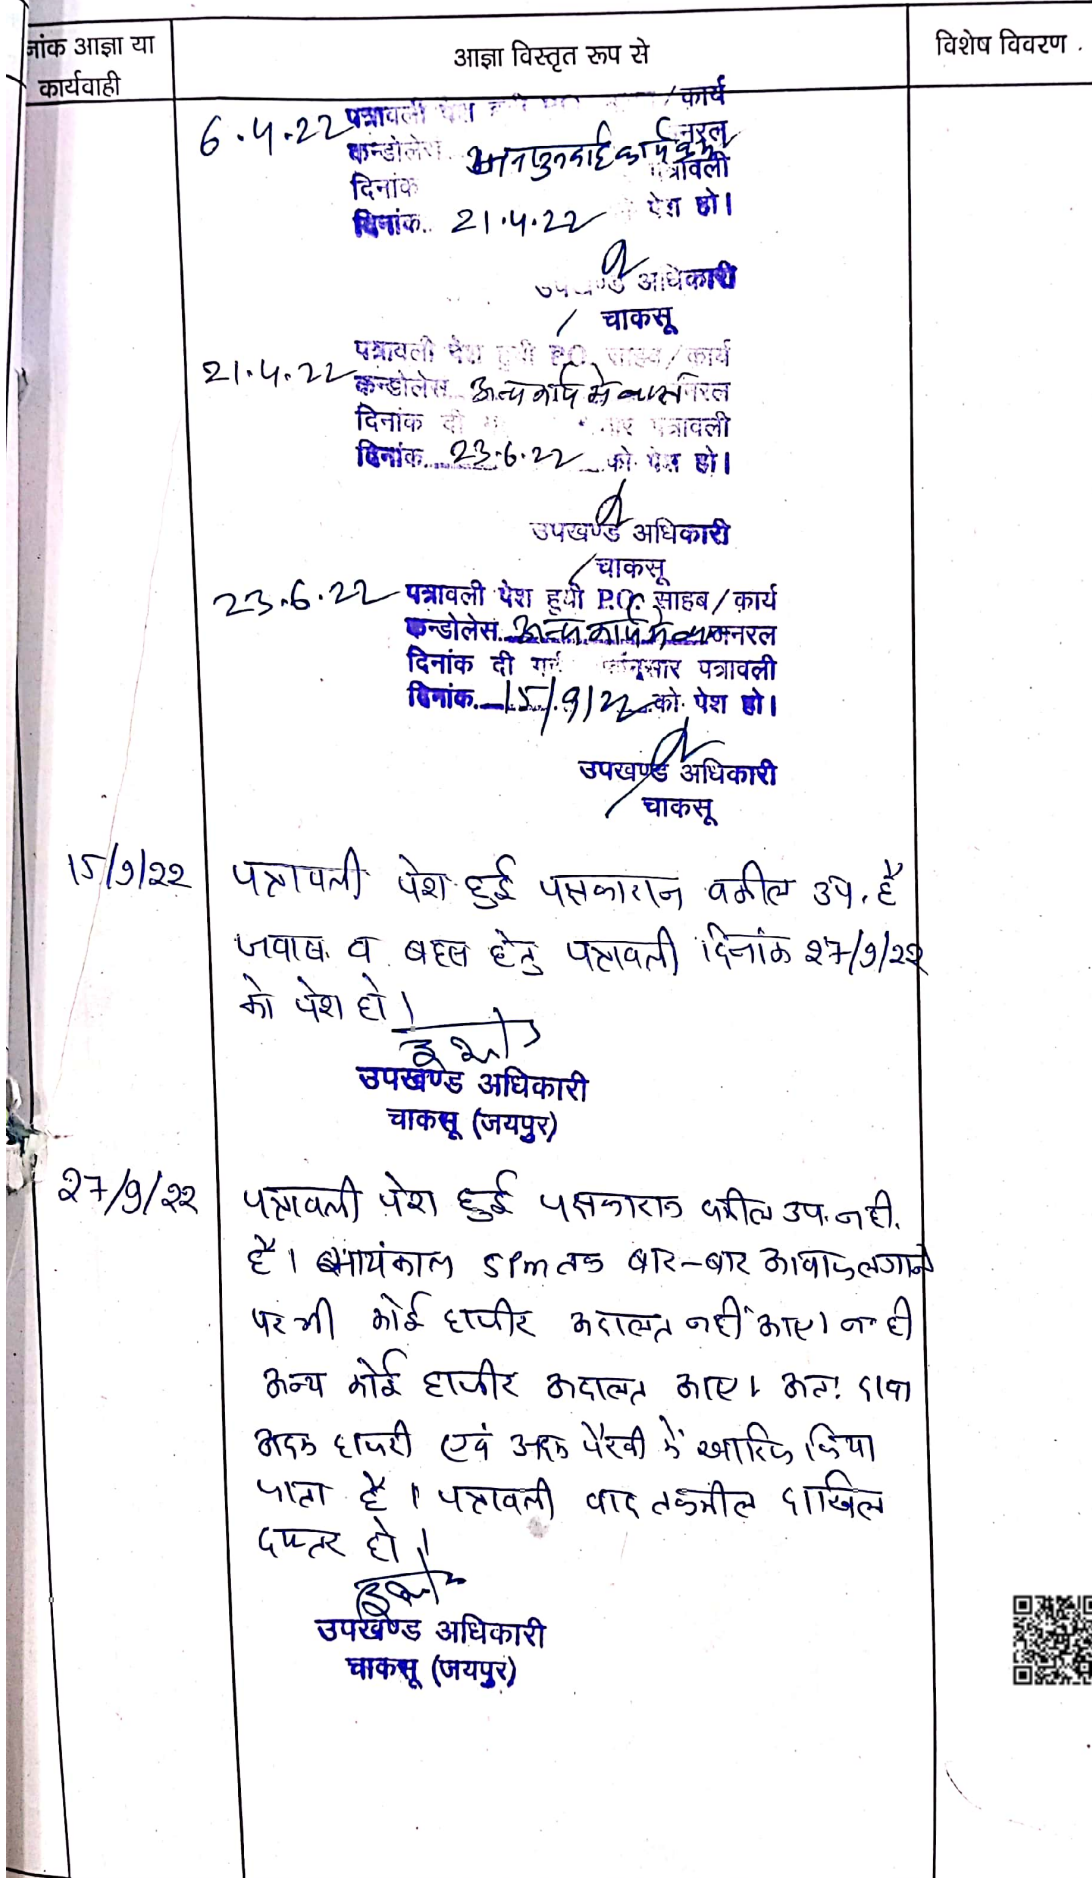 नांक आज्ञा या
कार्यवाही
आज्ञा विस्तृत रूप से
विशेष विवरण .
6.4.22 पत्रावली पेश / कार्य
कन्डोलेस नरल
दिनांक पत्रावली
दिनांक.. 21.4.22 पेश हो।
उपखण्ड अधिकारी
चाकसू
21.4.22 पत्रावली पेश हुयी P.O. साहब / कार्य
कन्डोलेस.. अन्य कार्य मे व्यस्त नरल
दिनांक दी पत्रावली
दिनांक....23.6.22 को पेश हो।
उपखण्ड अधिकारी
चाकसू
23.6.22 पत्रावली पेश हुयी P.O. साहब / कार्य
कन्डोलेस.. अन्य कार्य मे जनरल
दिनांक दी गई नुसार पत्रावली
दिनांक...15/9/22 को पेश हो।
उपखण्ड अधिकारी
चाकसू
15/9/22 पत्रावली पेश हुई पक्षकारान वकील उप. है
जवाब व बहस हेतु पत्रावली दिनांक 27/9/22
को पेश हो।
उपखण्ड अधिकारी
चाकसू (जयपुर)
27/9/22 पत्रावली पेश हुई पक्षकारान वकील उप. नही.
है। सायंकाल 5 Pm तक बार-बार आवाज लगाने
पर भी कोई हाजीर अदालत नहीं आए। न ही
अन्य कोई हाजीर अदालत आए। अतः दावा
अदम हाजरी एवं अदम पैरवी में खारिज किया
जाता है। पत्रावली बाद तकमील दाखिल
दफ्तर हो।
उपखण्ड अधिकारी
चाकसू (जयपुर)